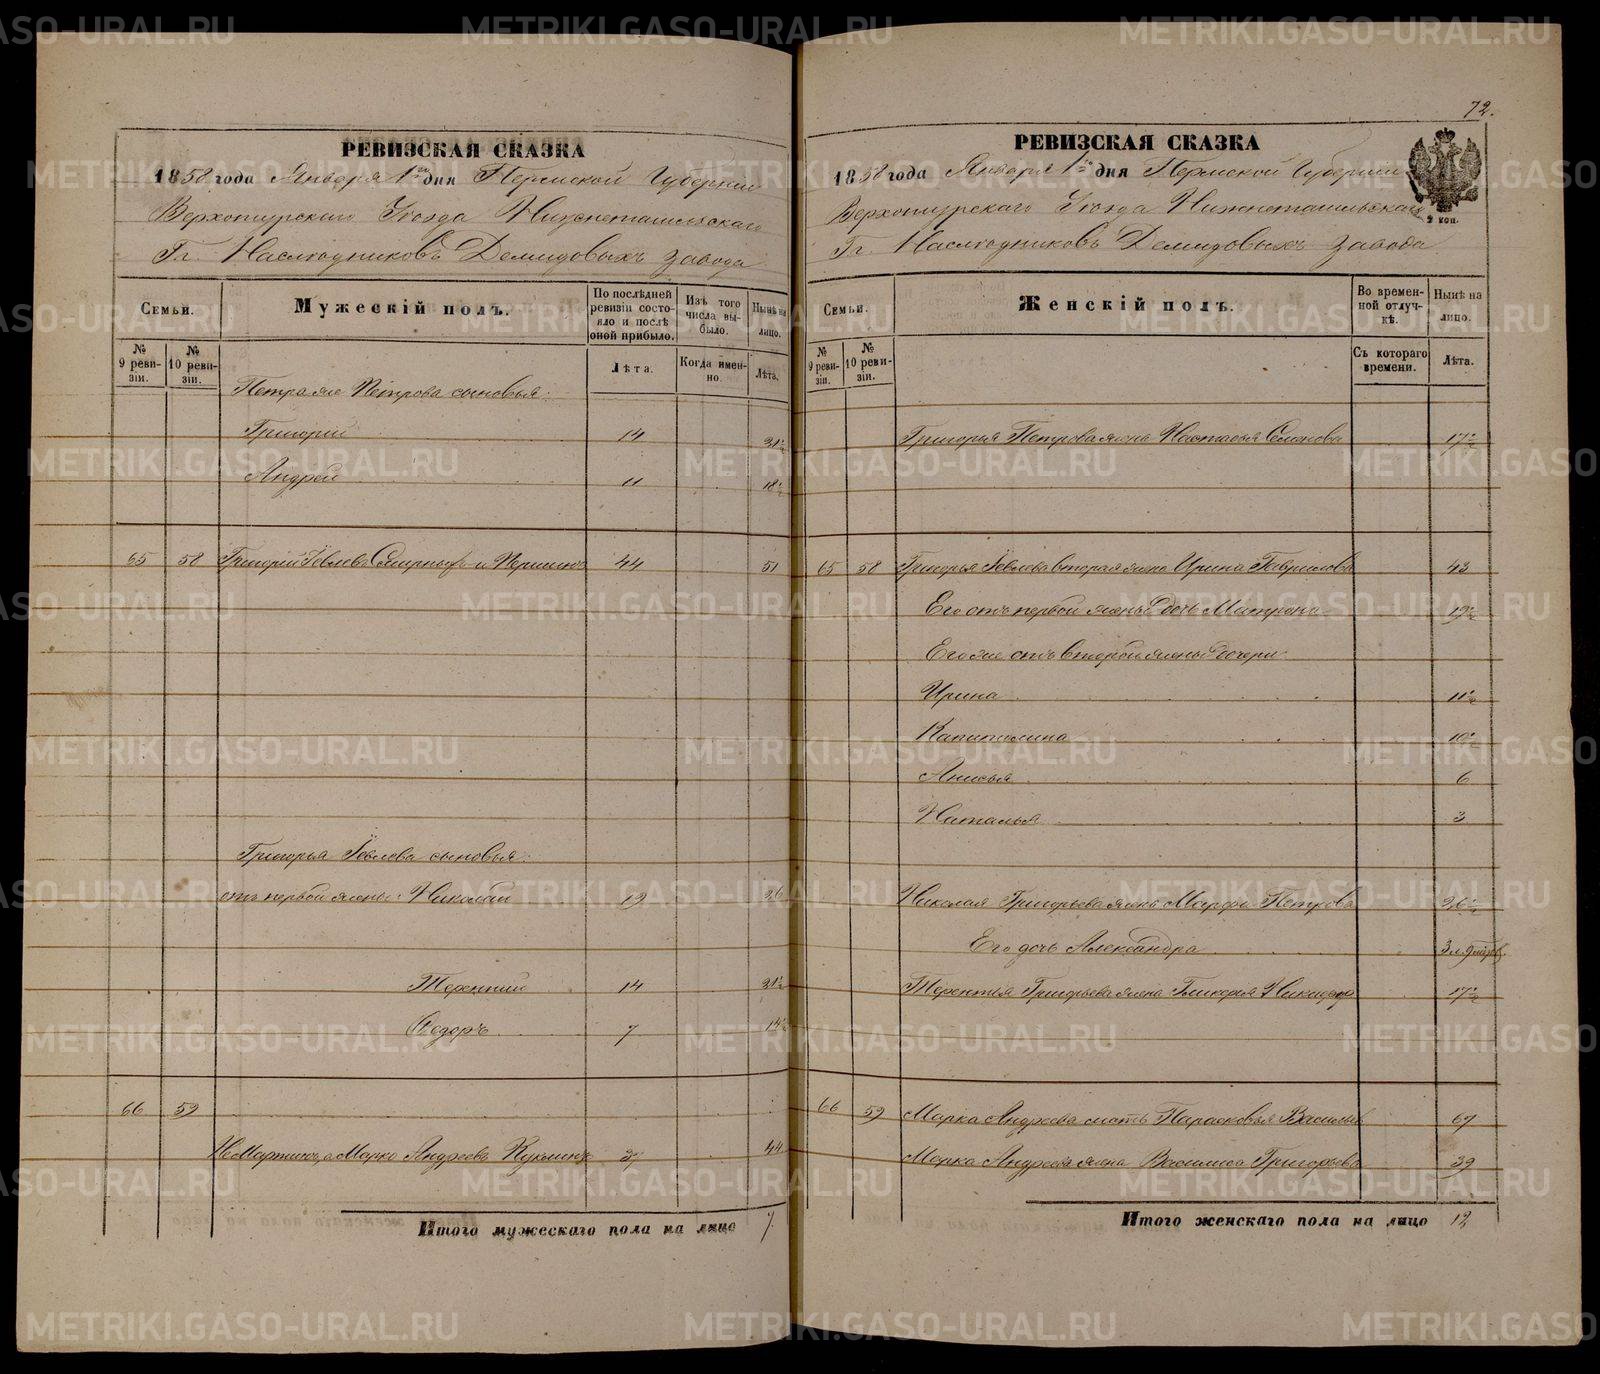 72.
РЕВИЗСКАЯ СКАЗКА
1858 года Января 1го дня Пермской Губернии
Верхотурского Уезда Нижнетагильскаго
Гг. Наследниковъ Демидовыхъ завода
Семьи.
Мужескій полъ.
По послѣдней ревизіи состояло и послѣ оной прибыло.
Изъ того числа выбыло.
Нынѣ на лицо.
№ 9 ревизіи.
№ 10 ревизіи.
Лѣта.
Когда именно.
Лѣта.
Петра же Петрова сыновья:
Григорій 14 21½
Андрей 11 18½
65 58 Григорій Іевлевъ Смирныхъ и Першинъ 44 51
Григорья Іевлева сыновья:
отъ первой жены: Николай 19 26
Терентий 14 21½
Федоръ 7 14½
66 59
Не Мартинъ, а Марко Андреевъ Кузьминъ 37 44
Итого мужескаго пола на лицо 7
РЕВИЗСКАЯ СКАЗКА
1858 года Января 1го дня Пермской Губернии
Верхотурскаго Уезда Нижнетагильскаго
Гг. Наследниковъ Демидовыхъ завода
2 коп.
Семьи.
Женскій полъ.
Во временной отлучкѣ.
Нынѣ на лицо.
№ 9 ревизіи.
№ 10 ревизіи.
Съ котораго времени.
Лѣта.
Григорья Петрова жена Настасья Семенова 17½
65 58 Григорья Іевлева вторая жена Ирина Гаврилова 43
Его отъ первой жены дочь Матрена 19½
Его же отъ второй жены дочери:
Ирина 11½
Капитолина 10½
Анисья 6
Наталья 3
Николая Григорьева жена Марфа Петрова 26½
Его дочь Александра 3 л. 9 месяц.
Терентія Григорьева жена Гликерья Никифор 17½
66 59 Марка Андреева мать Парасковья Васильев 67
Марка Андреева жена Василиса Григорьева 39
Итого женскаго пола на лицо 12
METRIKI.GASO-URAL.RU